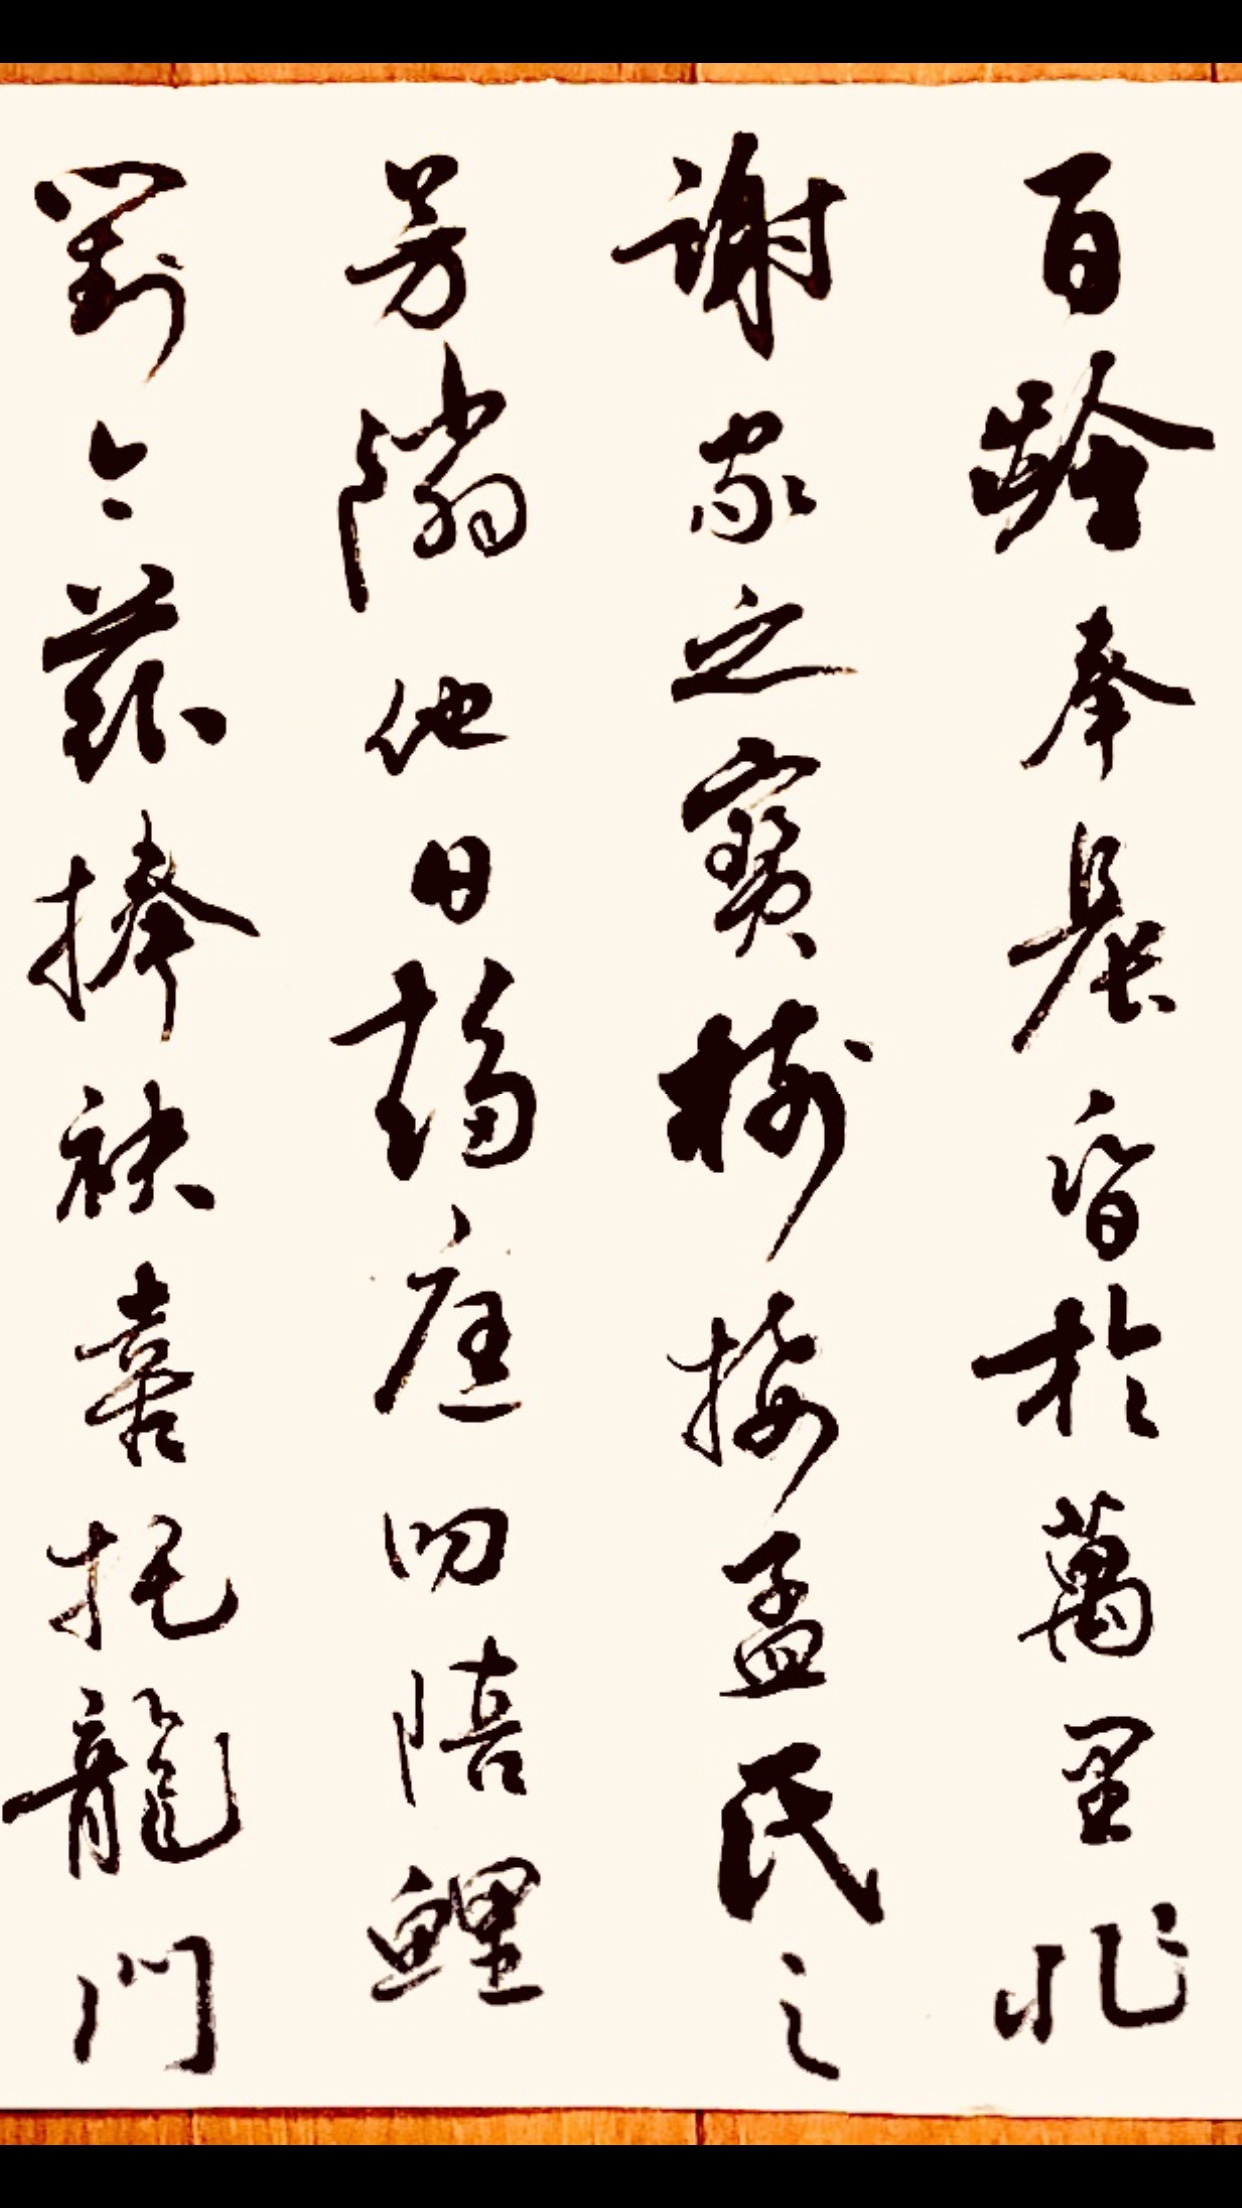 百齡奉晨昏於萬里非
謝家之寶樹接孟氏之
芳隣他日趨庭叨陪鯉
對今茲捧袂喜托龍門